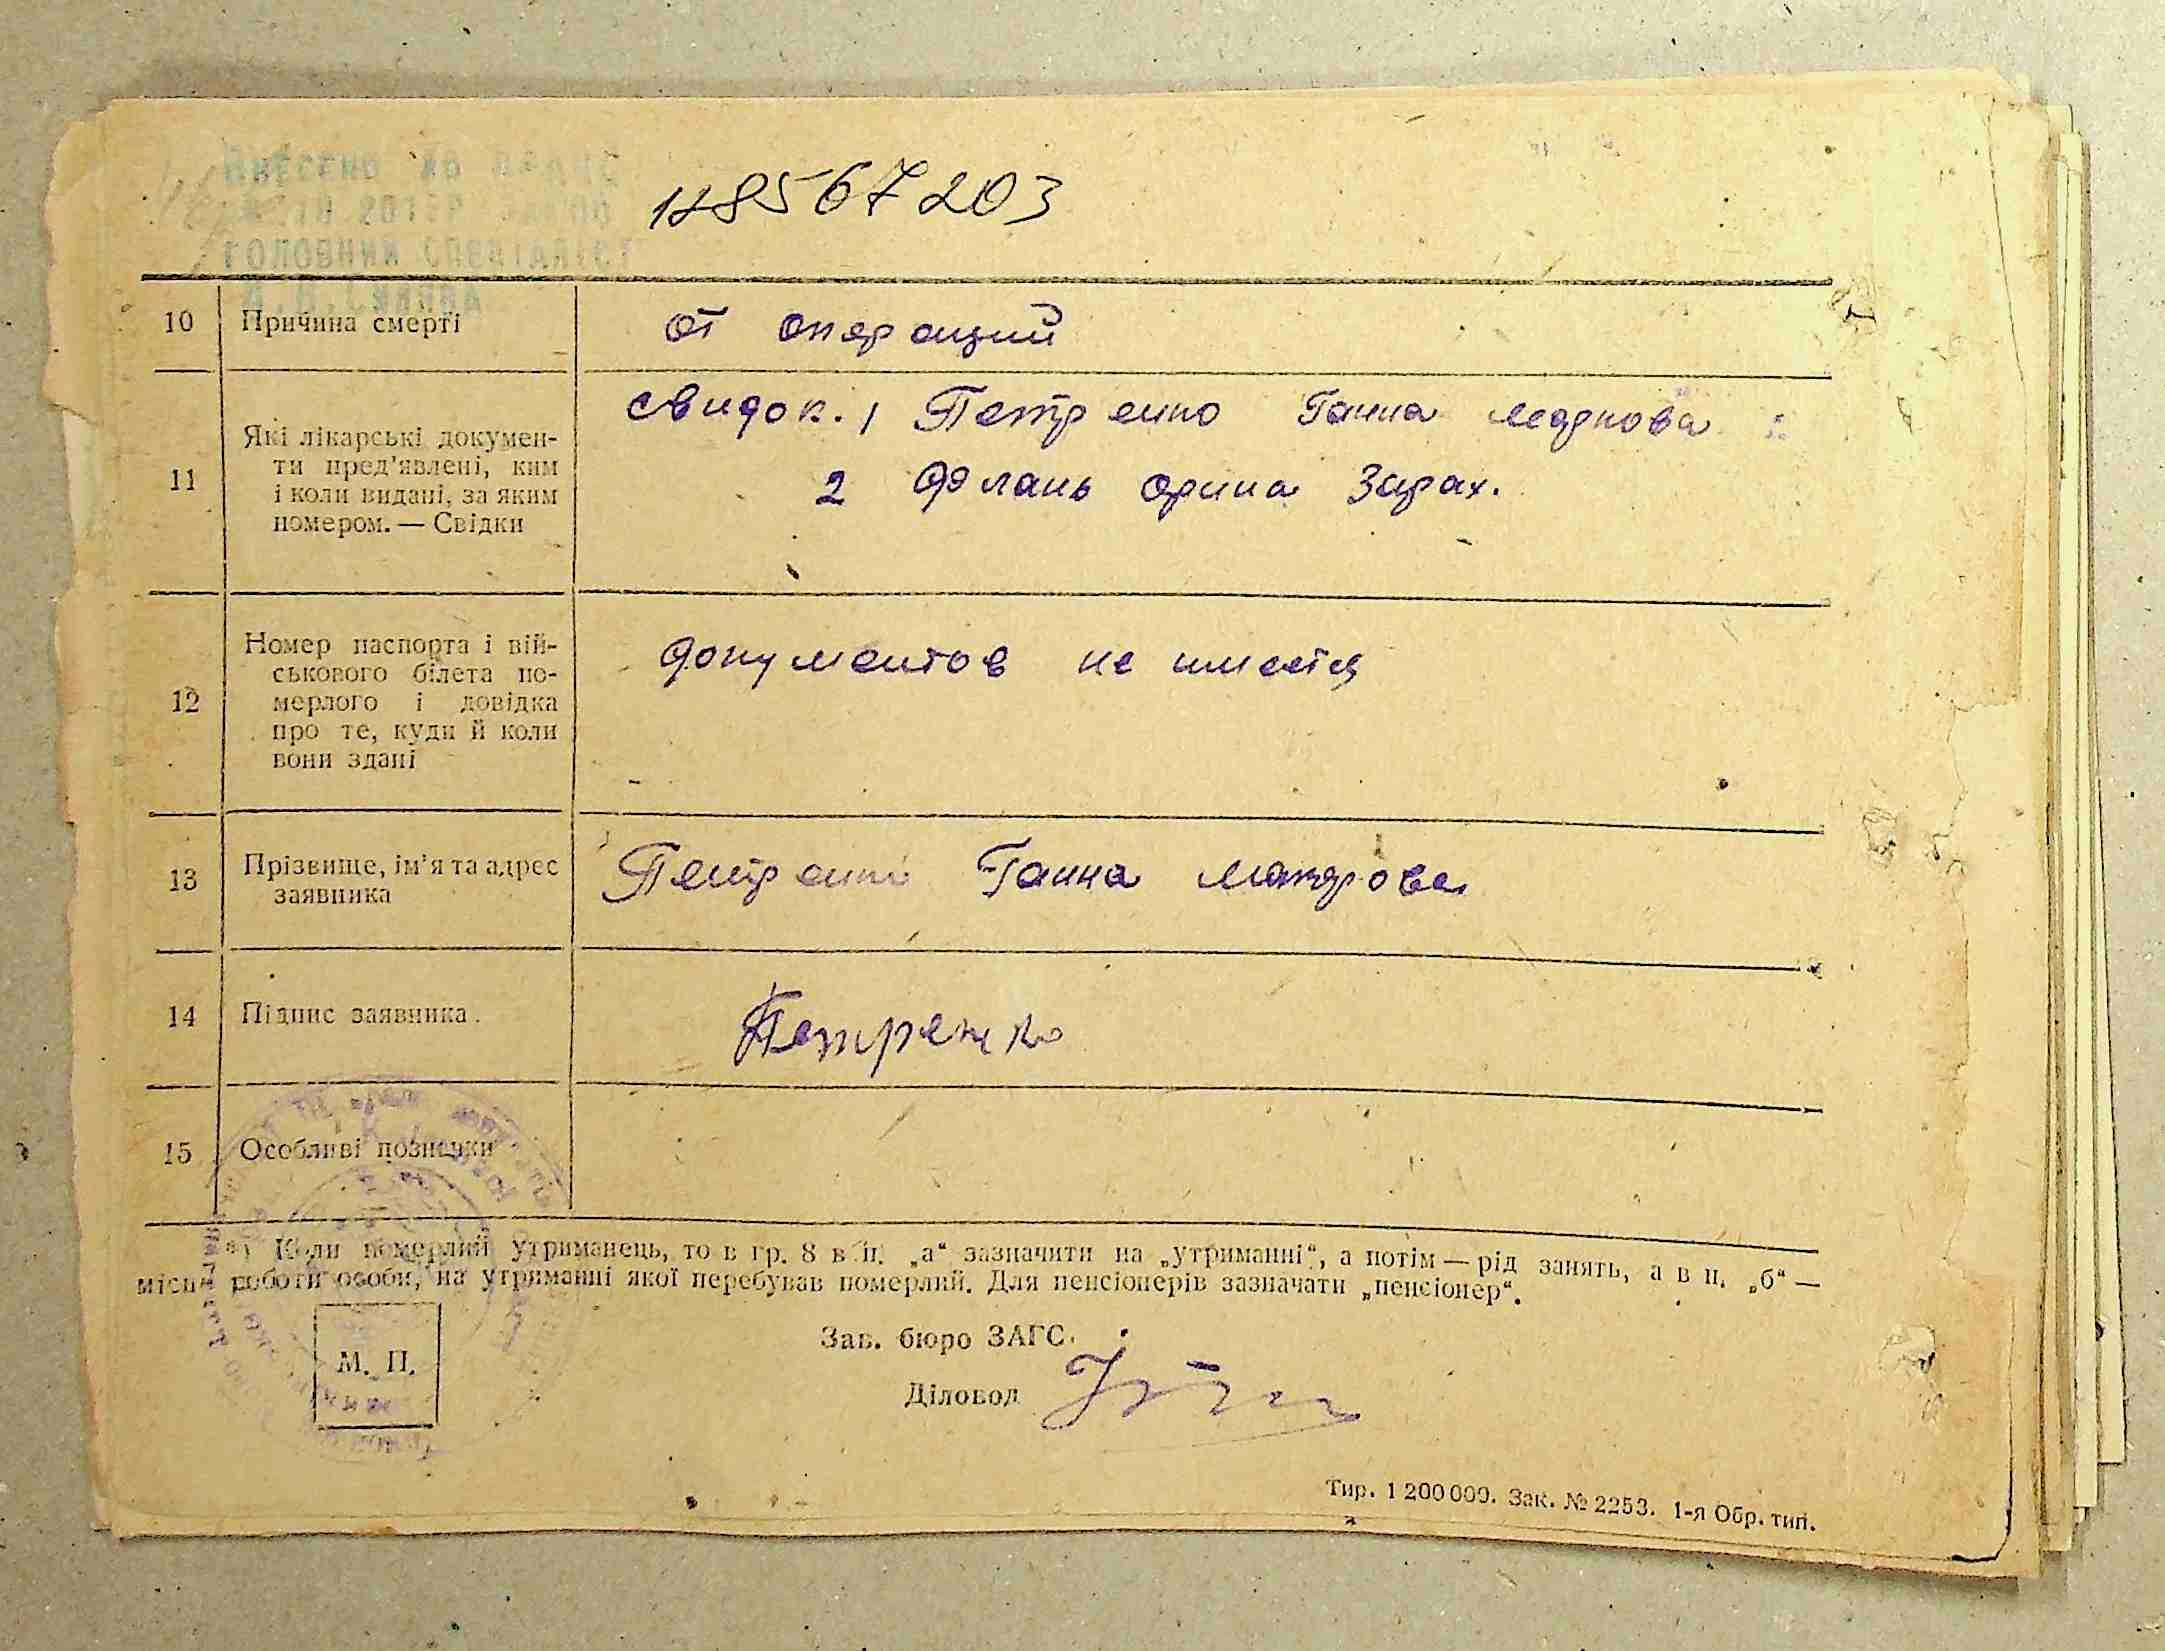 ГОЛОВНИЙ СПЕЦІАЛІСТ
10 Причина смерті
от операций
11 Які лікарські докумен-
ти пред'явлені, ким
і коли видані, за яким
номером. — Свідки
свидок. 1 Петренко Ганна
2 Орина Захар.
12 Номер паспорта і вій-
ськового білета по-
мерлого і довідка
про те, куди й коли
вони здані
документов не имеется
13 Прізвище, ім'я та адрес
заявника
Петренко Ганна
14 Підпис заявника.
Петренко
15 Особливі позначки
*) Коли померлий утриманець, то в гр. 8 в п. „а“ зазначити на „утриманні“, а потім — рід занять, а в п. „б“ —
місце роботи особи, на утриманні якої перебував померлий. Для пенсіонерів зазначати „пенсіонер“.
Зав. бюро ЗАГС.
М. П.
Діловод
Тир. 1 200 000. Зак. № 2253. 1-я Обр. тип.